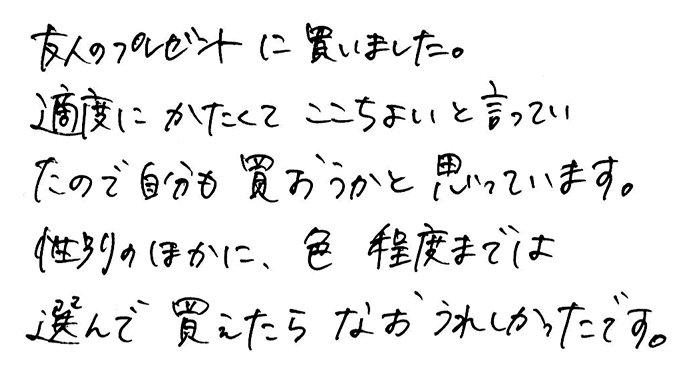 友人のプレゼントに買いました。
適度にかたくてここちよいと言ってい
たので自分も買おうかと思っています。
性別のほかに、色程度までは
選んで買えたらなおうれしかったです。